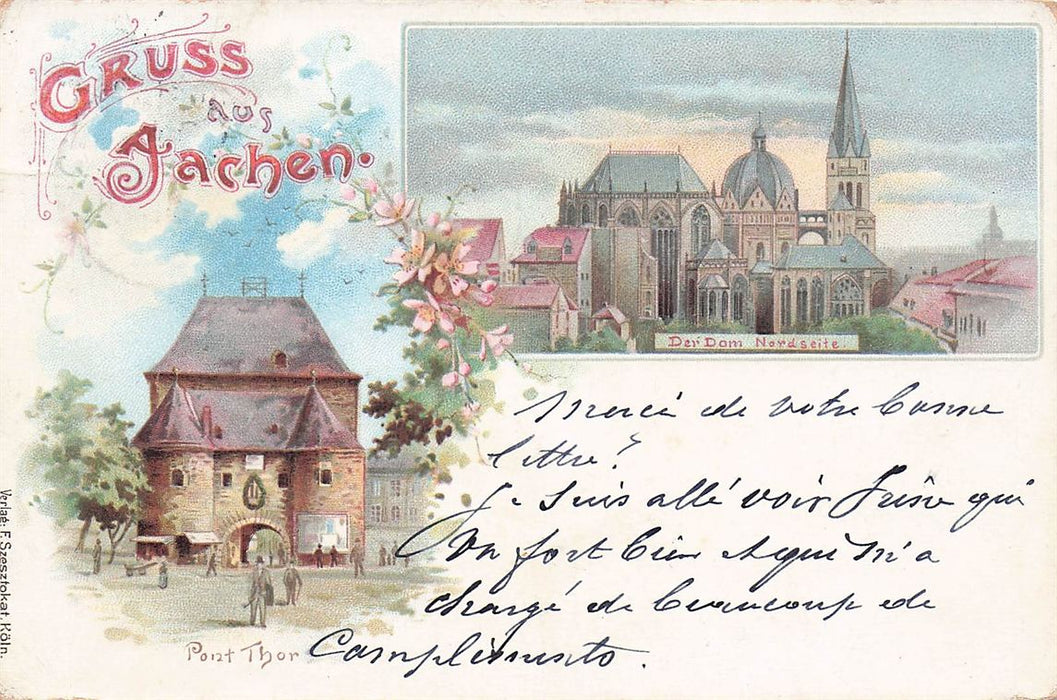 GRUSS
aus
Aachen.
Der Dom Nordseite.
Merci de votre bonne
lettre!
Je suis allé voir qui
va fort bien et qui m'a
chargé de beaucoup de
Compliments.
Pont Thor
Verlag: F. Szesztokat, Köln.